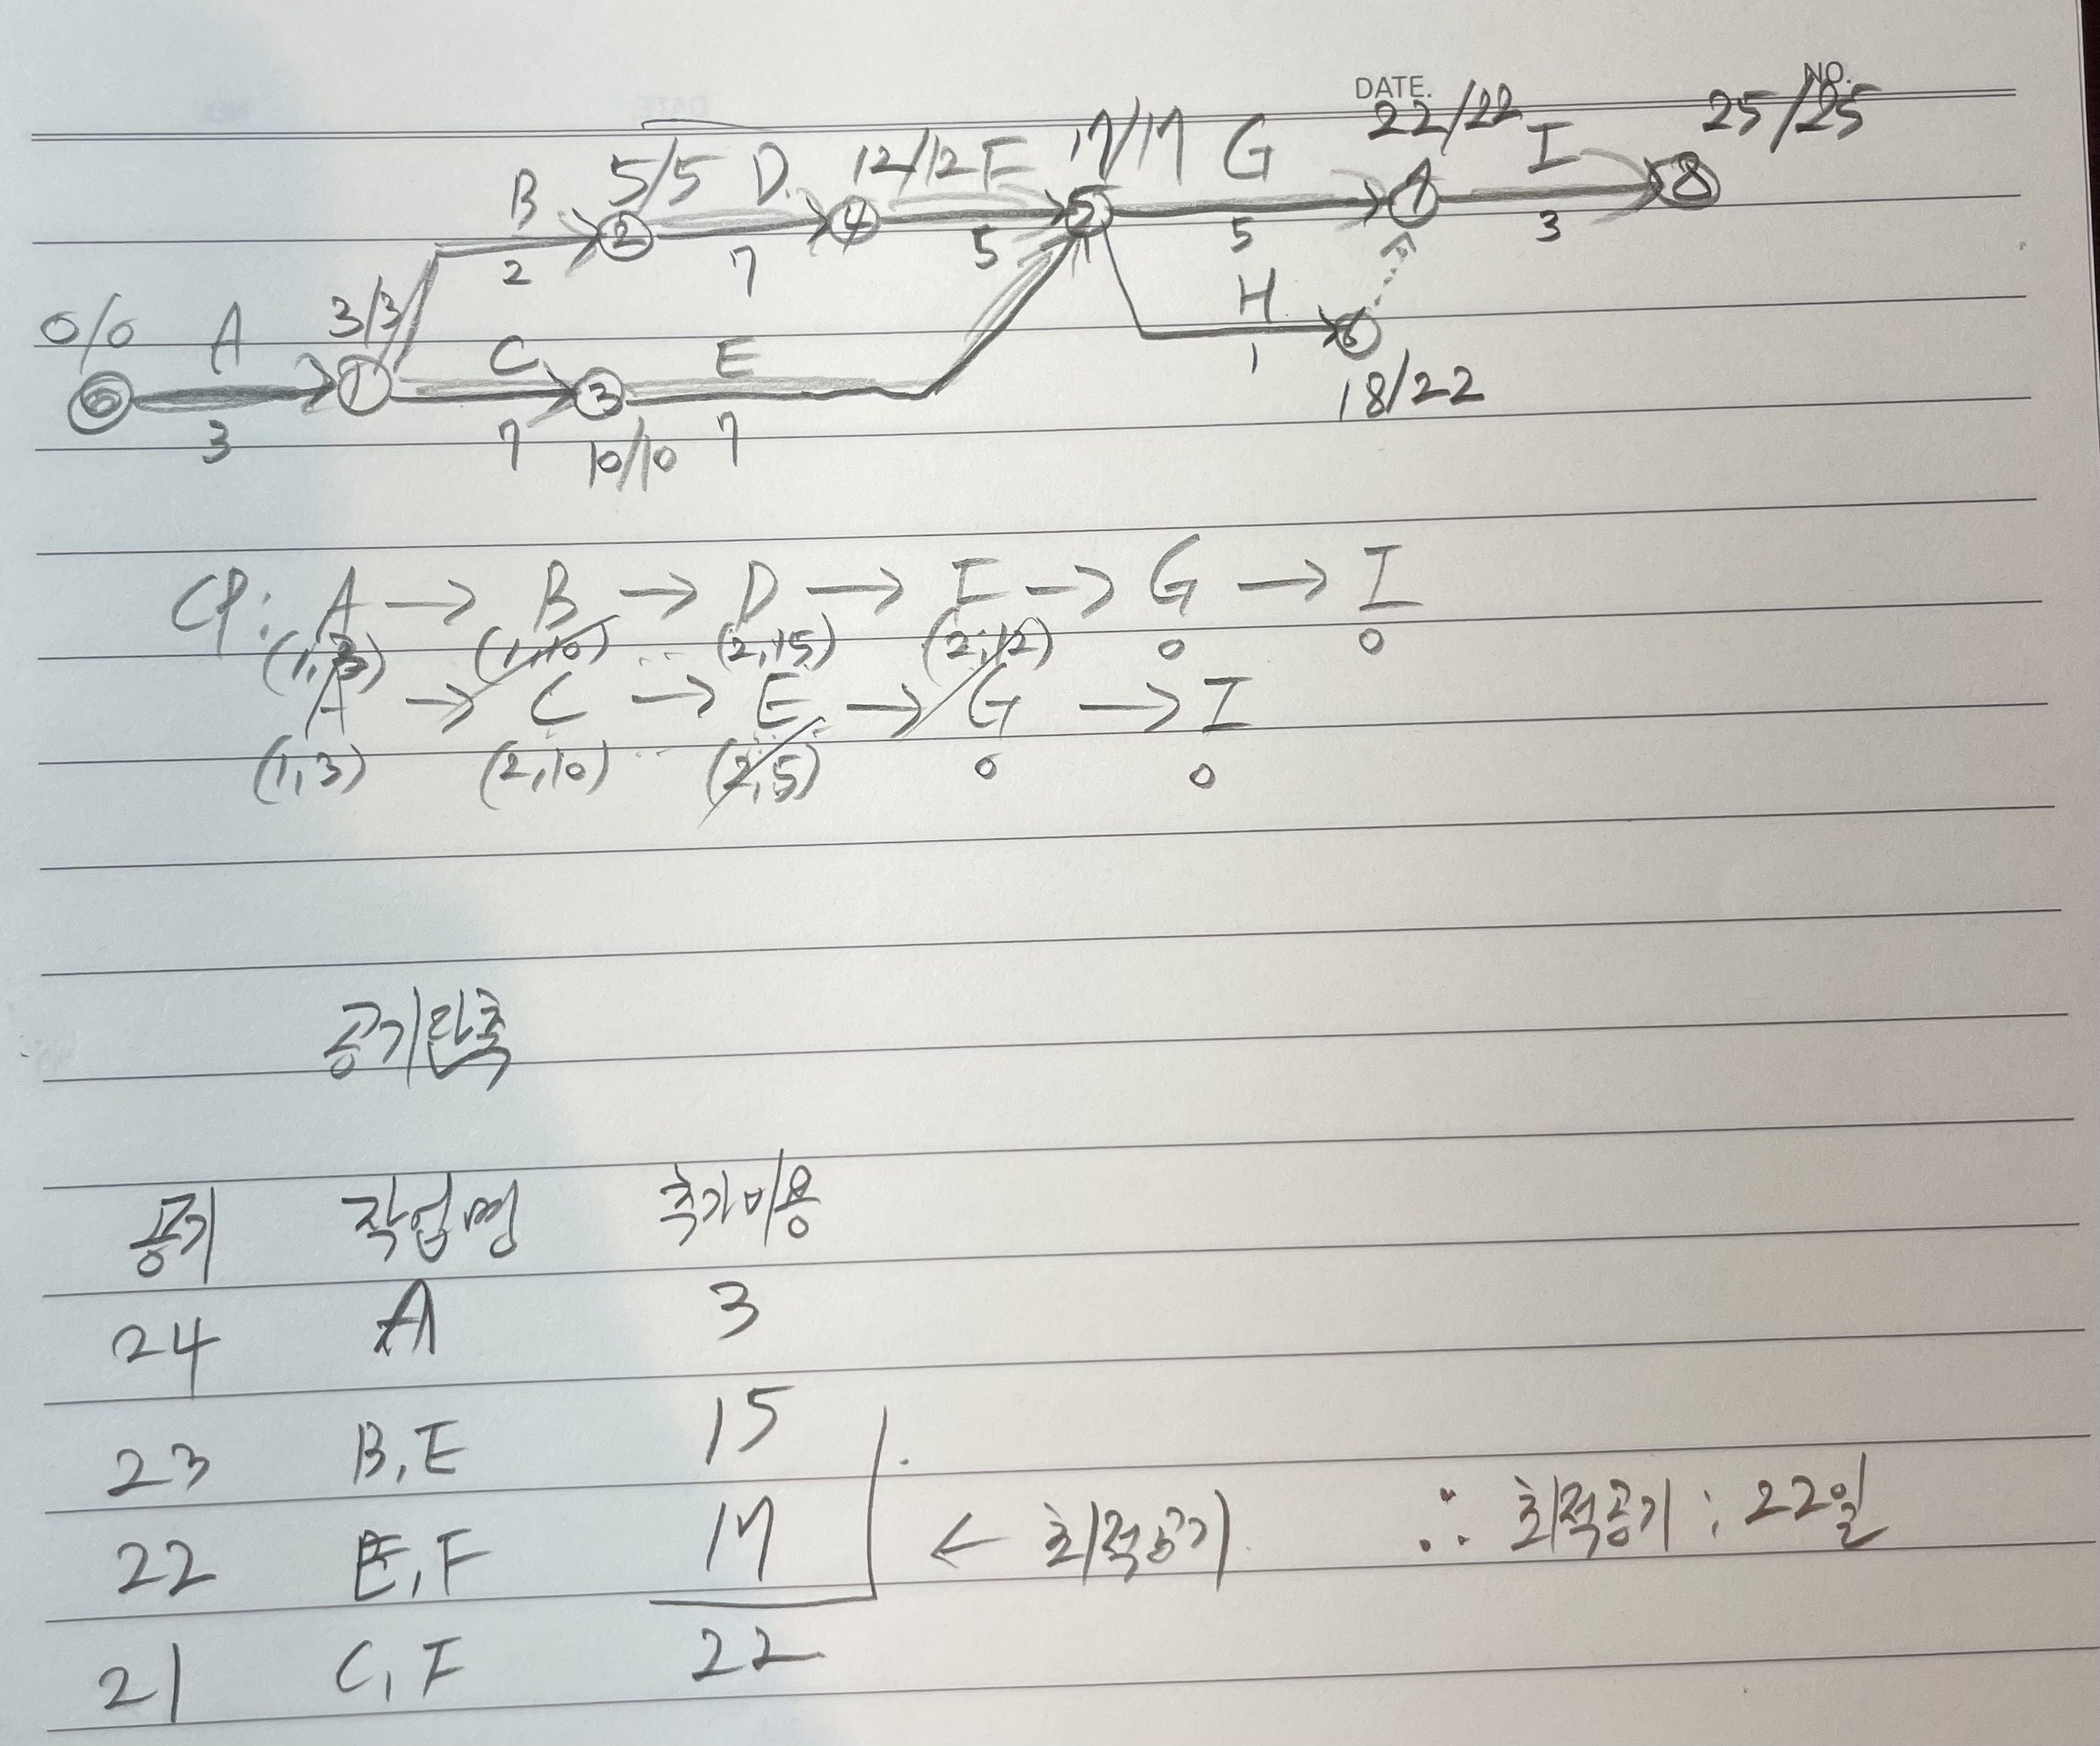 DATE. NO.
B 5/5 D 12/12 F 17/17 G 22/22 I 25/25
2 4 5 7 8
2 7 5 5 3
0/0 A 3/3 C E H
0 1 3 6
3 7 10/10 7 1 18/22
CP: A → B → D → F → G → I
(1,3) (1,10) (2,15) (2,12) 0 0
A → C → E → G → I
(1,3) (2,10) (2,5) 0 0
공기단축
공기 작업명 추가비용
24 A 3
23 B, E 15
22 E, F 17 ← 최적공기 ∴ 최적공기 : 22일
21 C, F 22